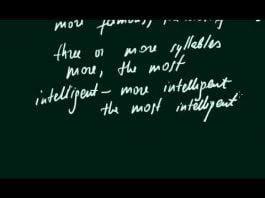 more famous,
three or more syllables
more, the most
intelligent – more intelligent
the most intelligent